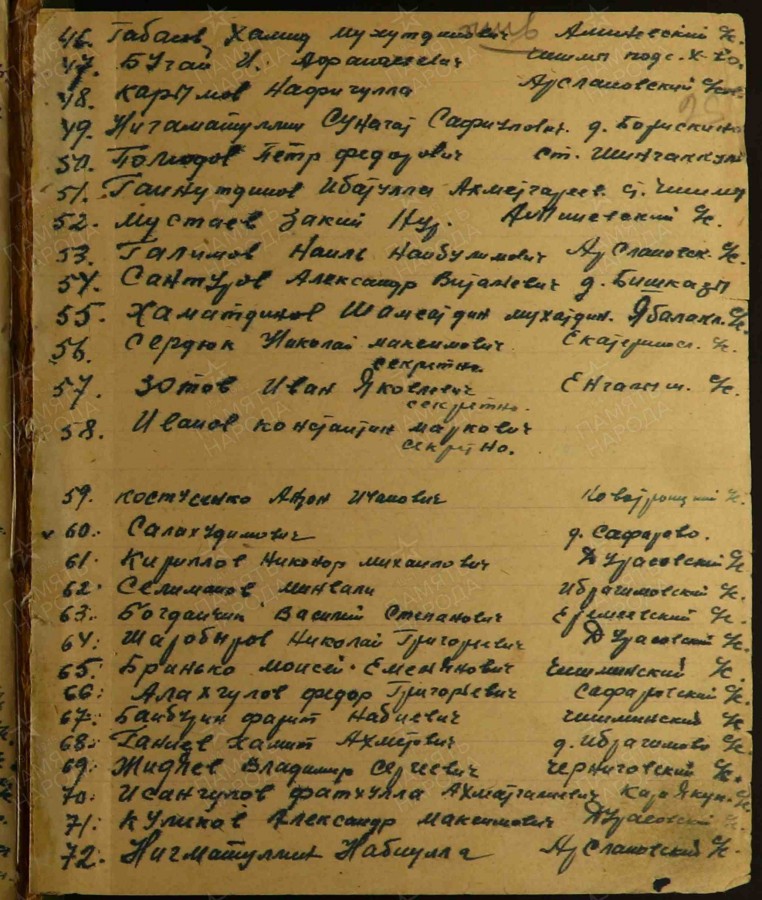 жив
46. Габаев Хамид Мухутдинович Аминевский с/с.
47. Бугай И. Афанасьевич Чишмы подс. х-во.
48. Каримов Нафигулла Арслановский с/сов.
49. Нигаматуллин Сунагат Сафиулович. д. Борискино
50. Полюдов Петр Федорович ст. Шингаккуль
51. Гаинутдинов Ибатулла Ахметгареев. ст. Чишмы
52. Мустаев Закий Нур. Аминевский с/с.
53. Галимов Наиль Наибулимович Арслановск. с/с.
54. Сантуров Александр Витальевич д. Бишказы
55. Хаматдинов Шамсатдин Мухатдин. Ябалакл. с/с.
56. Сердюк Николай Максимович Екатериносл. с/с.
секретно.
57. Зотов Иван Яковлевич Енгалыш. с/с.
секретно.
58. Иванов Константин Маркович
секретно.
59. Костусенко Антон Иванович Новотроицкий с/с.
60. Салахудинович д. Сафарово.
61. Кириллов Никонор Михаилович Дурасовский с/с
62. Селиманов Минвали Ибрагимовский с/с.
63. Богданчик Василий Степанович Еремеевский с/с.
64. Шаробыров Николай Григорьевич Дурасовский с/с.
65. Бринько Моисей Еменянович Чишминский с/с.
66. Алахгулов Федор Григорьевич Сафаровский с/с.
67. Баибурин Фарит Набиевич Чишминский с/с
68. Ганиев Хамит Ахметович д. Ибрагимово с/с.
69. Жидяев Владимир Сергеевич Черниговский с/с.
70. Исангулов Фатхулла Ахматгалиевич Кара Якуп. с/с
71. Куликов Александр Максимович Дурасовский с/с.
72. Нигматуллин Набиулла Арслановский с/с.